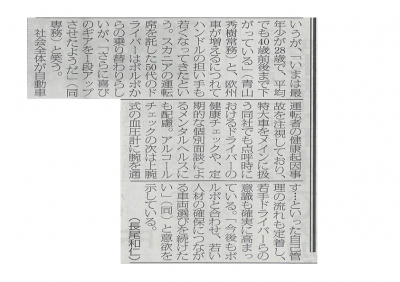 いうが、「いまは最
年少が28歳で、平均
でも40歳前後まで下
がっている」（青山
秀樹常務）と、欧州
車が増えるにつれて
ハンドルの担い手も
若くなってきたとい
う。スカニアの運転
席を託した50代のド
ライバーはボルボか
らの乗り替わりらし
いが、「さらに喜び
のギアを１段アップ
させたようだ」（同
専務）と笑う。
社会全体が自動車
運転者の健康起因事
故を注視しており、
特大車をメインに扱
う同社でも点呼時に
おけるドライバーの
健康チェックや、定
期的な個別面談によ
るメンタルヘルスに
も配慮。アルコール
チェックの次は上腕
式の血圧計に腕を通
す…といった自己管
理の流れも定着し、
若手ドライバーらの
意識も確実に高まっ
ている。「今後もボ
ルボと合わせ、若い
人材の確保につなが
る車両選びを続けた
い」（同）と意欲を
示している。
（長尾和仁）